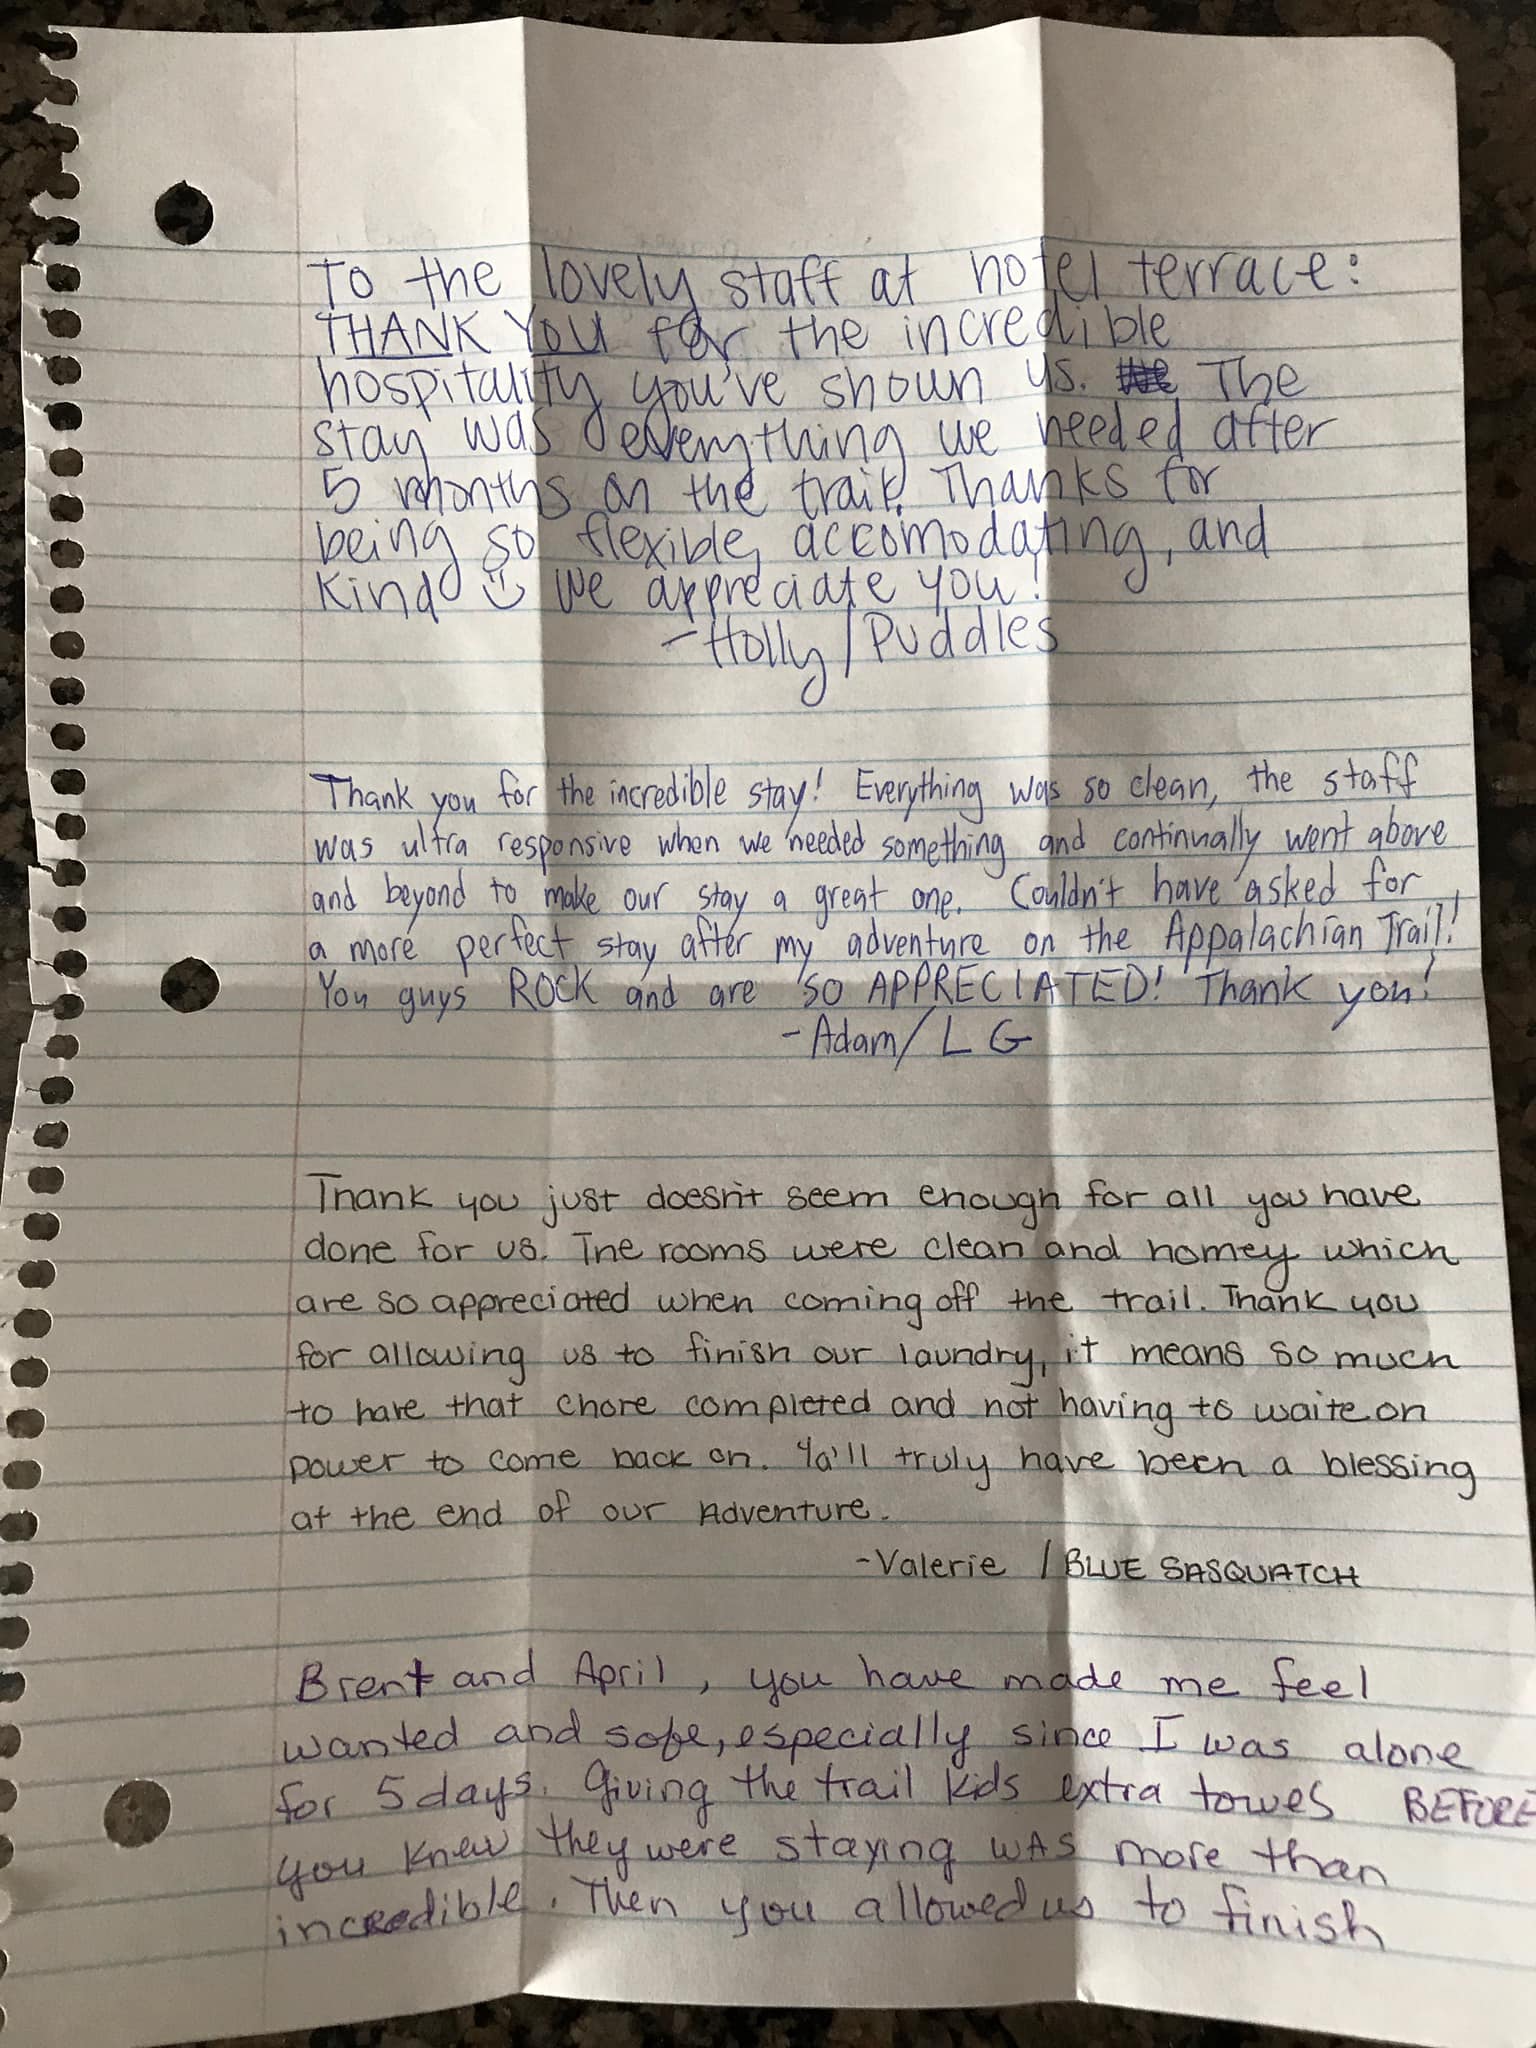 To the lovely staff at hotel terrace:
THANK YOU for the incredible
hospitality you've shown us. The
stay was everything we needed after
5 months on the trail. Thanks for
being so flexible, accomodating, and
kind We appreciate you!
-Holly/Puddles
Thank you for the incredible stay! Everything was so clean, the staff
was ultra responsive when we needed something and continually went above
and beyond to make our stay a great one. Couldn't have asked for
a more perfect stay after my adventure on the Appalachian Trail!
You guys ROCK and are SO APPRECIATED! Thank you!
-Adam/LG
Thank you just doesn't seem enough for all you have
done for us. The rooms were clean and homey which
are so appreciated when coming off the trail. Thank you
for allowing us to finish our laundry, it means so much
to have that chore completed and not having to waite on
power to come back on. Ya'll truly have been a blessing
at the end of our Adventure.
-Valerie / BLUE SASQUATCH
Brent and April, you have made me feel
wanted and safe, especially since I was alone
for 5 days. Giving the trail kids extra towes BEFORE
you knew they were staying WAS more than
incredible. Then you allowed us to finish